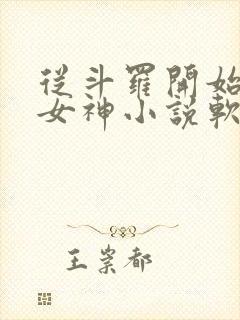 從斗羅開始
女神小說軟
王崇都